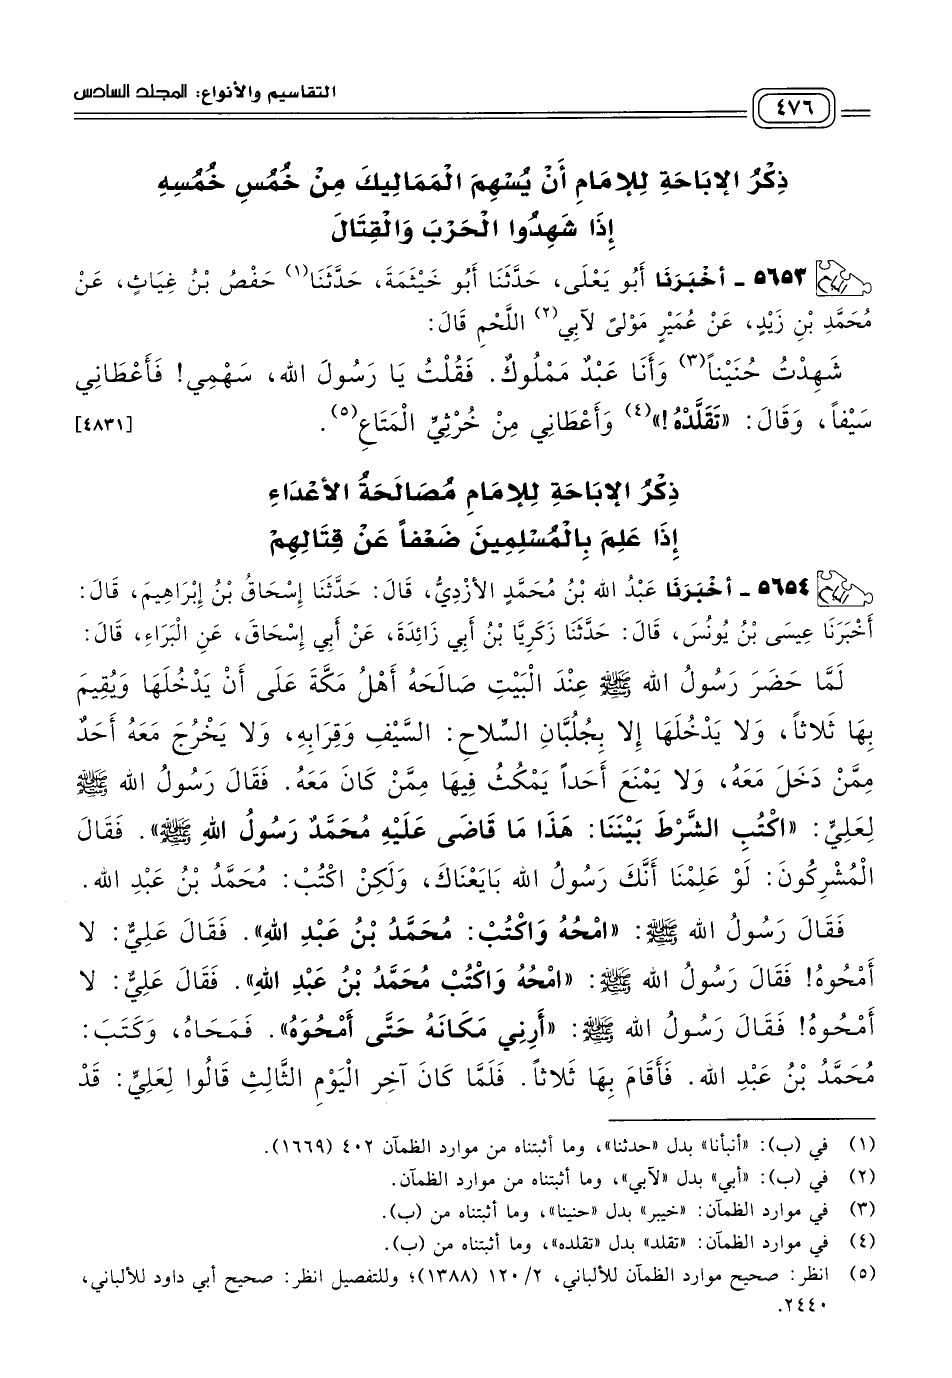 التقاسيم والأنواع: المجلد السادس
٤٧٦
ذِكْرُ الإبَاحَةِ لِلإمَامِ أَنْ يُسْهِمَ الْمَمَالِيكَ مِنْ خُمُسِ خُمُسِهِ
إِذَا شَهِدُوا الْحَرْبَ وَالْقِتَالَ
٥٦٥٣ ـ أَخْبَرَنَا أَبُو يَعْلَى، حَدَّثَنَا أَبُو خَيْثَمَةَ، حَدَّثَنَا(١) حَفْصُ بْنُ غِيَاثٍ، عَنْ
مُحَمَّدِ بْنِ زَيْدٍ، عَنْ عُمَيْرٍ مَوْلىً لآبِي(٢) اللَّحْمِ قَالَ:
شَهِدْتُ حُنَيْناً(٣) وَأَنَا عَبْدٌ مَمْلُوكٌ. فَقُلْتُ يَا رَسُولَ الله، سَهْمِي! فَأَعْطَانِي
سَيْفاً، وَقَالَ: «تَقَلَّدْهُ!»(٤) وَأَعْطَانِي مِنْ خُرْثِيِّ الْمَتَاعِ(٥). [٤٨٣١]
ذِكْرُ الإبَاحَةِ لِلإمَامِ مُصَالَحَةُ الأعْدَاءِ
إِذَا عَلِمَ بِالْمُسْلِمِينَ ضَعْفاً عَنْ قِتَالِهِمْ
٥٦٥٤ ـ أَخْبَرَنَا عَبْدُ الله بْنُ مُحَمَّدٍ الأزْدِيُّ، قَالَ: حَدَّثَنَا إِسْحَاقُ بْنُ إِبْرَاهِيمَ، قَالَ:
أَخْبَرَنَا عِيسَى بْنُ يُونُسَ، قَالَ: حَدَّثَنَا زَكَرِيَّا بْنُ أَبِي زَائِدَةَ، عَنْ أَبِي إِسْحَاقَ، عَنِ الْبَرَاءِ، قَالَ:
لَمَّا حَضَرَ رَسُولُ الله ﷺ عِنْدَ الْبَيْتِ صَالَحَهُ أَهْلُ مَكَّةَ عَلَى أَنْ يَدْخُلَهَا وَيُقِيمَ
بِهَا ثَلاثاً، وَلا يَدْخُلَهَا إِلا بِجُلُبَّانِ السِّلاحِ: السَّيْفِ وَقِرَابِهِ، وَلا يَخْرُجَ مَعَهُ أَحَدٌ
مِمَّنْ دَخَلَ مَعَهُ، وَلا يَمْنَعَ أَحَداً يَمْكُثُ فِيهَا مِمَّنْ كَانَ مَعَهُ. فَقَالَ رَسُولُ الله ﷺ
لِعَلِيٍّ: «اكْتُبِ الشَّرْطَ بَيْنَنَا: هَذَا مَا قَاضَى عَلَيْهِ مُحَمَّدٌ رَسُولُ اللهِ ﷺ». فَقَالَ
الْمُشْرِكُونَ: لَوْ عَلِمْنَا أَنَّكَ رَسُولُ الله بَايَعْنَاكَ، وَلَكِنْ اكْتُبْ: مُحَمَّدُ بْنُ عَبْدِ الله.
فَقَالَ رَسُولُ الله ﷺ: «امْحُهُ وَاكْتُبْ: مُحَمَّدُ بْنُ عَبْدِ اللهِ». فَقَالَ عَلِيٌّ: لا
أَمْحُوهُ! فَقَالَ رَسُولُ الله ﷺ: «امْحُهُ وَاكْتُبْ مُحَمَّدُ بْنُ عَبْدِ اللهِ». فَقَالَ عَلِيٌّ: لا
أَمْحُوهُ! فَقَالَ رَسُولُ الله ﷺ: «أَرِنِي مَكَانَهُ حَتَّى أَمْحُوَهُ». فَمَحَاهُ، وَكَتَبَ:
مُحَمَّدُ بْنُ عَبْدِ الله. فَأَقَامَ بِهَا ثَلاثاً. فَلَمَّا كَانَ آخِرِ الْيَوْمِ الثَّالِثِ قَالُوا لِعَلِيٍّ: قَدْ
(١) في (ب): «أنبأنا» بدل «حدثنا»، وما أثبتناه من موارد الظمآن ٤٠٢ (١٦٦٩).
(٢) في (ب): «أبي» بدل «لآبي»، وما أثبتناه من موارد الظمآن.
(٣) في موارد الظمآن: «خيبر» بدل «حنينا»، وما أثبتناه من (ب).
(٤) في موارد الظمآن: «تقلد» بدل «تقلده»، وما أثبتناه من (ب).
(٥) انظر: صحيح موارد الظمآن للألباني، ٢/ ١٢٠ (١٣٨٨)؛ وللتفصيل انظر: صحيح أبي داود للألباني،
٢٤٤٠.